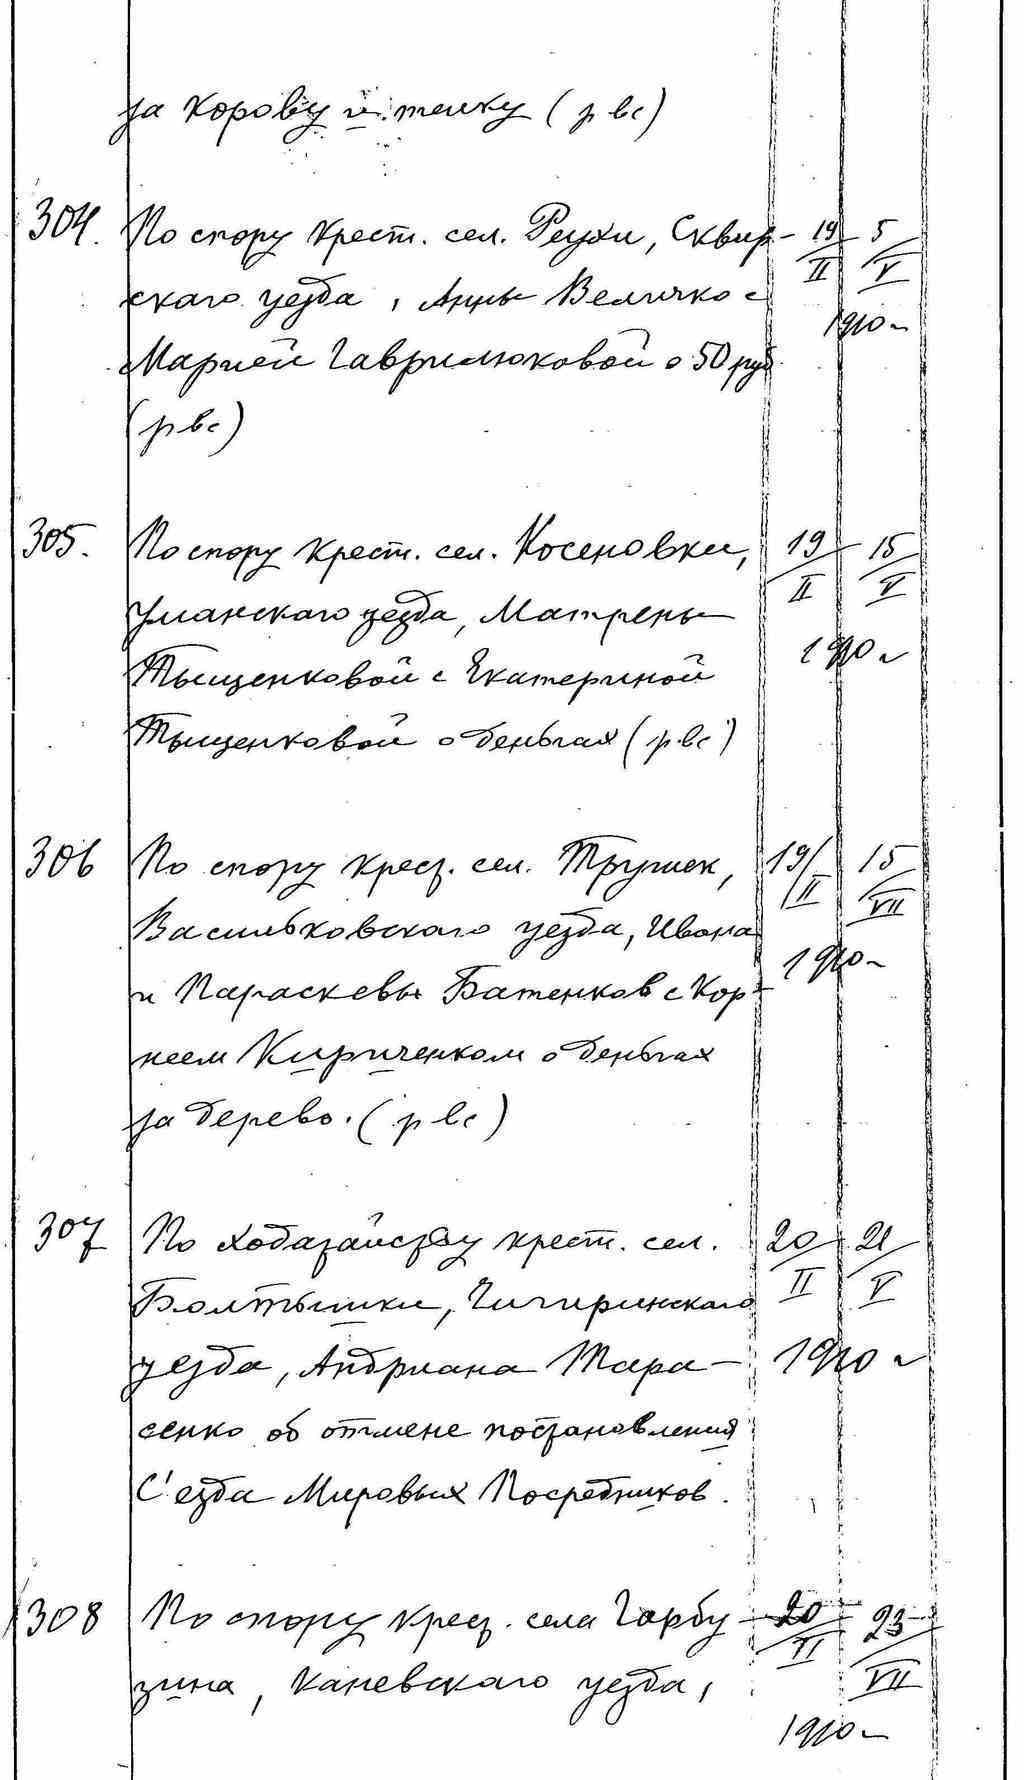 за корову и телку (р вс)
304. По спору крест. сел. Реухи, Сквир- 19/II 5/V
скаго уезда, Анны Величко с 1910 г
Марией Гаврилюковой о 50 руб
(р вс)
305. По спору крест. сел. Косеновки, 19/II 15/V
Уманскаго уезда, Матрены 1910 г
Тыщенковой с Екатериной
Тыщенковой о деньгах (р вс)
306 По спору крест. сел. Трушек, 19/II 15/VII
Васильковского уезда, Ивана 1910 г
и Параскевы Батенков с Кор-
неем Кириченком о деньгах
за дерево. (р вс)
307 По ходатайству крест. сел. 20/II 21/V
Болтышки, Чигиринскаго
уезда, Андриана Тара- 1910 г
сенко об отмене постановления
С'езда Мировых Посредников.
308 По спору крест. села Гарбу- 20/II 23/VII
зина, Каневскаго уезда,
1910 г